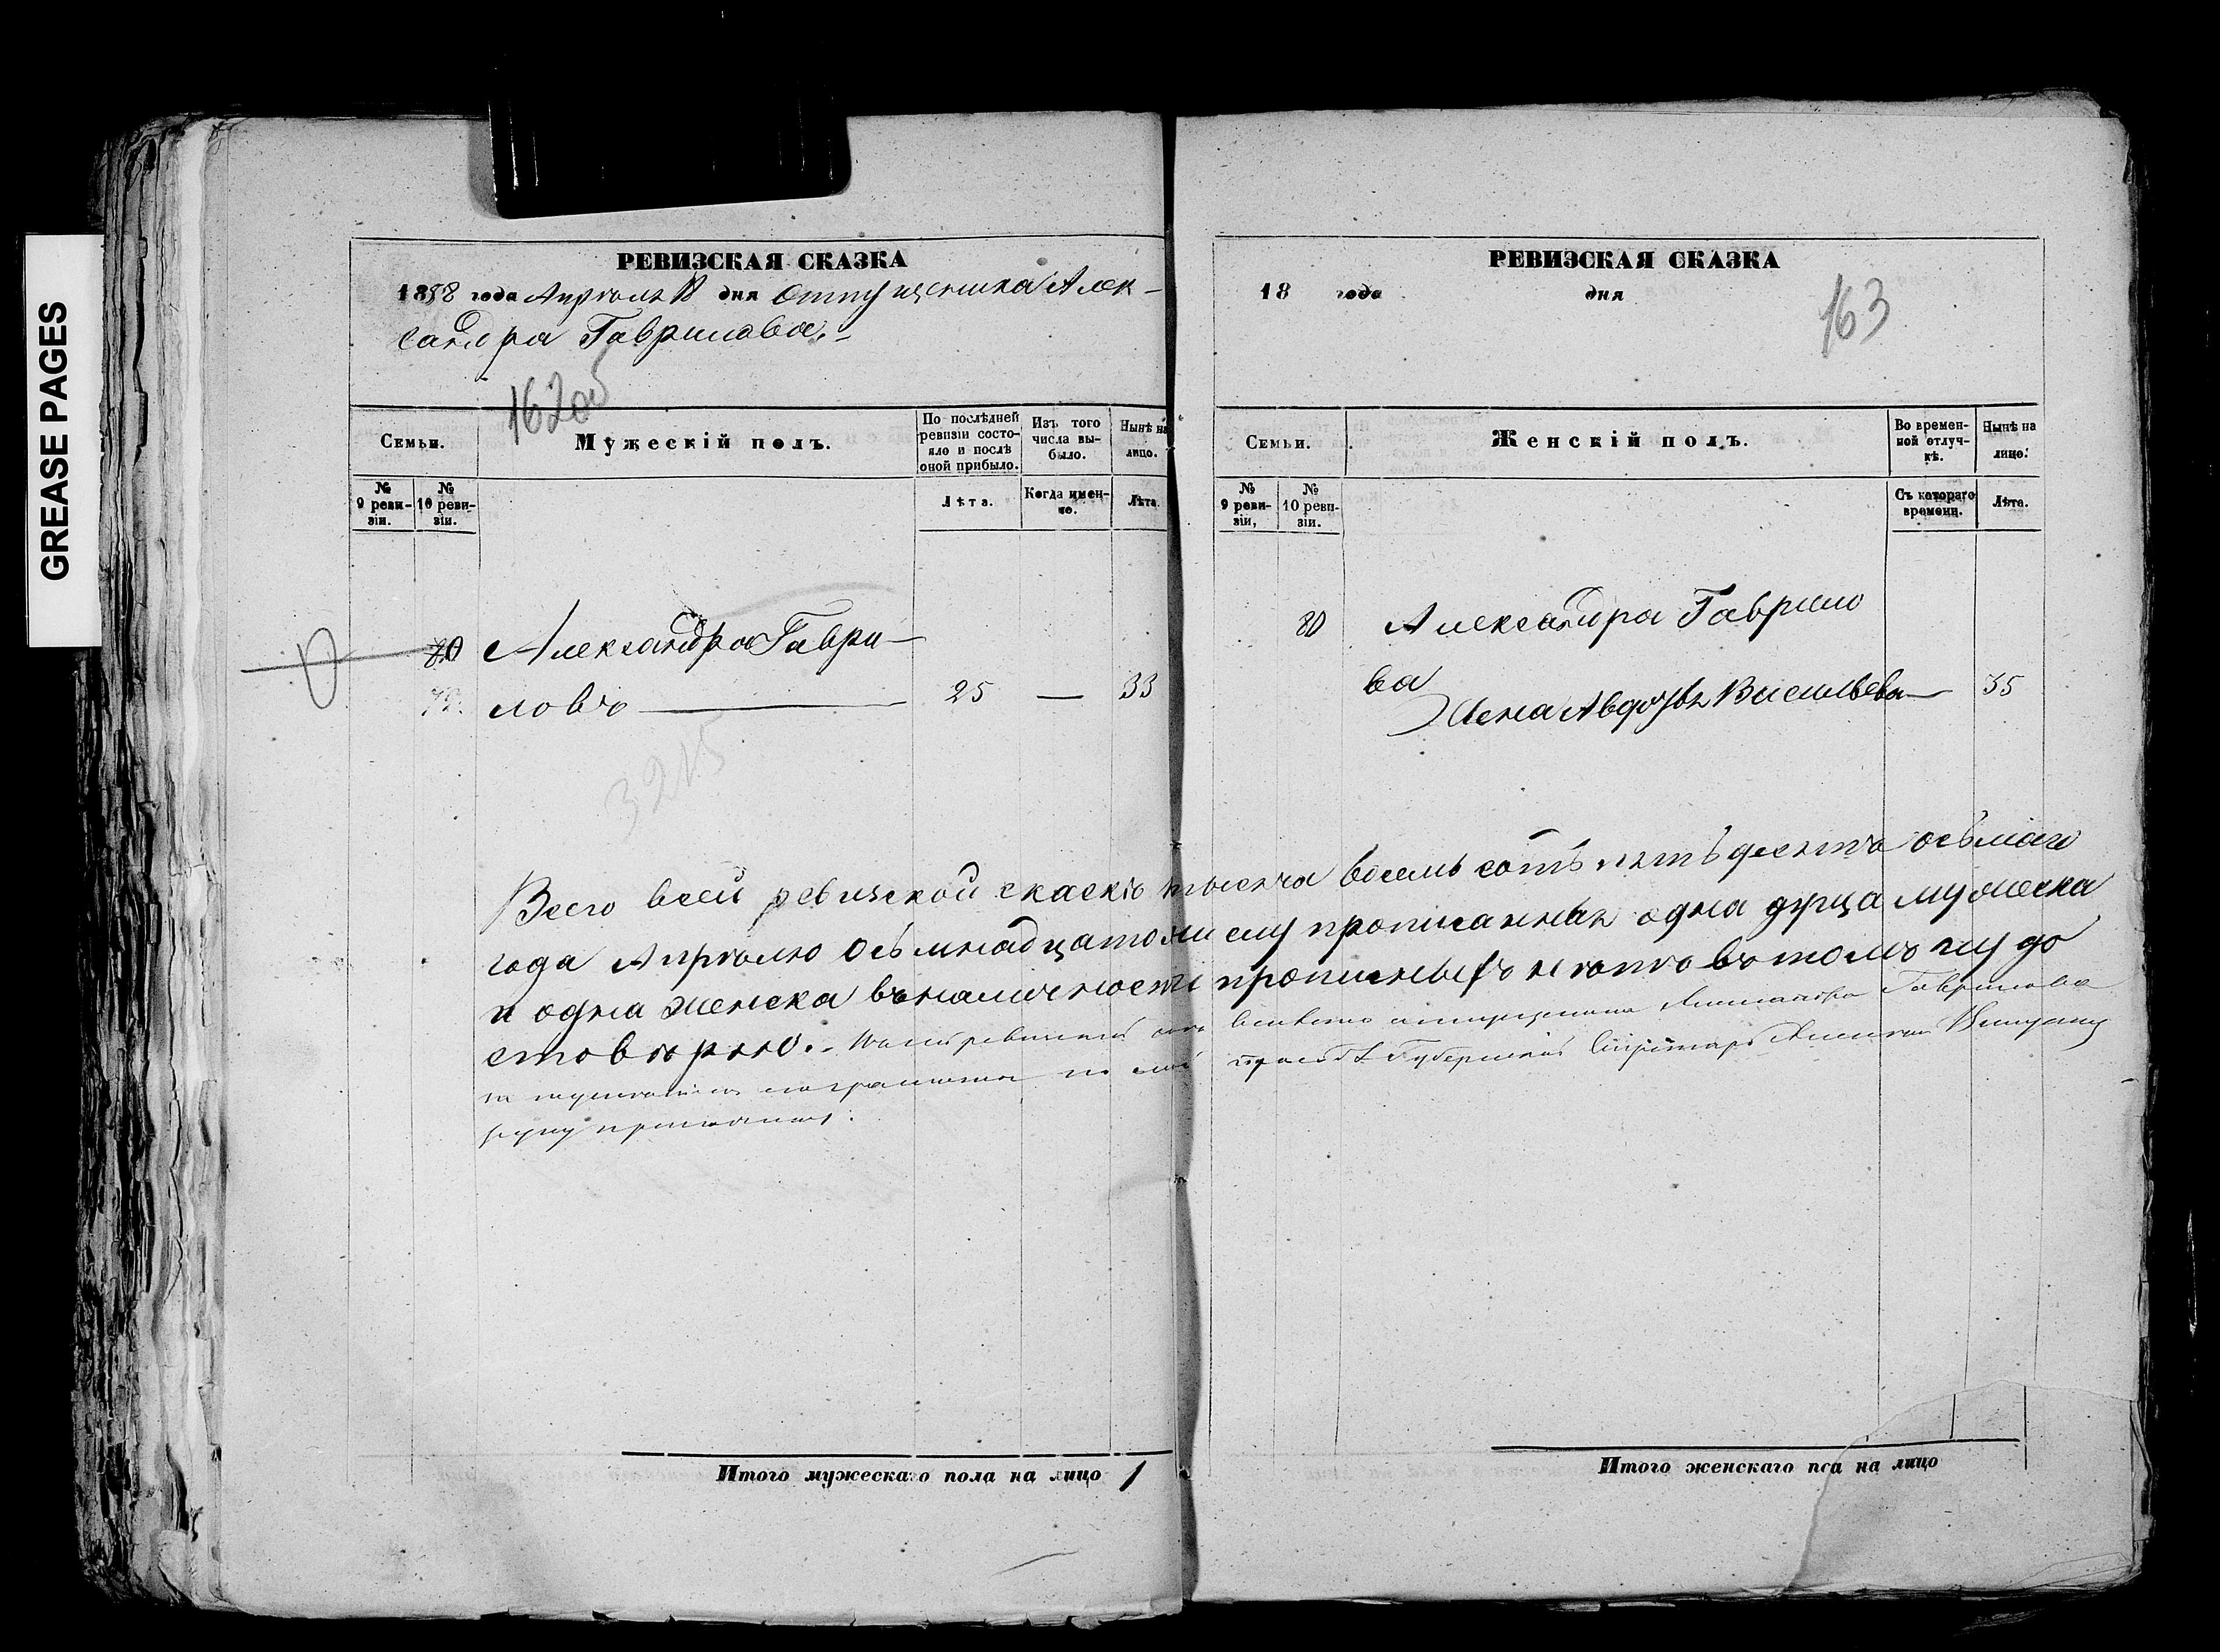 GREASE PAGES
РЕВИЗСКАЯ СКАЗКА
1858 года Апрѣля 18 дня Отпущеника Алек-
сандра Гаврилова.
162об
Семьи.
Мужескій полъ.
По послѣдней ревизіи состояло и послѣ оной прибыло.
Изъ того числа выбыло.
Нынѣ на лицо.
№ 9 ревизіи.
№ 10 ревизіи.
Лѣта.
Когда именно.
Лѣта.
80 Александра Гаври-
79. ловъ 25 — 33
3215
РЕВИЗСКАЯ СКАЗКА
18 года дня
163
Семьи.
Женскій полъ.
Во временной отлучкѣ.
Нынѣ на лицо.
№ 9 ревизіи,
№ 10 ревизіи.
Съ котораго времени.
Лѣта.
80 Александра Гаврило
ва
Жена Авдотья Васильева 35
Всего всей ревизской скаскѣ тысяча восемь сотъ пятьдесятъ осьмаго
года Апрѣлю осьмнадцатому прописанныя одна душа мужеска
и одна женска въ наличности прописныхъ нѣтъ въ томъ и удо
стовѣряю.
Александра Гаврилова
Губернскій Секретарь
руку приложилъ.
Итого мужескаго пола на лицо 1
Итого женскаго пола на лицо